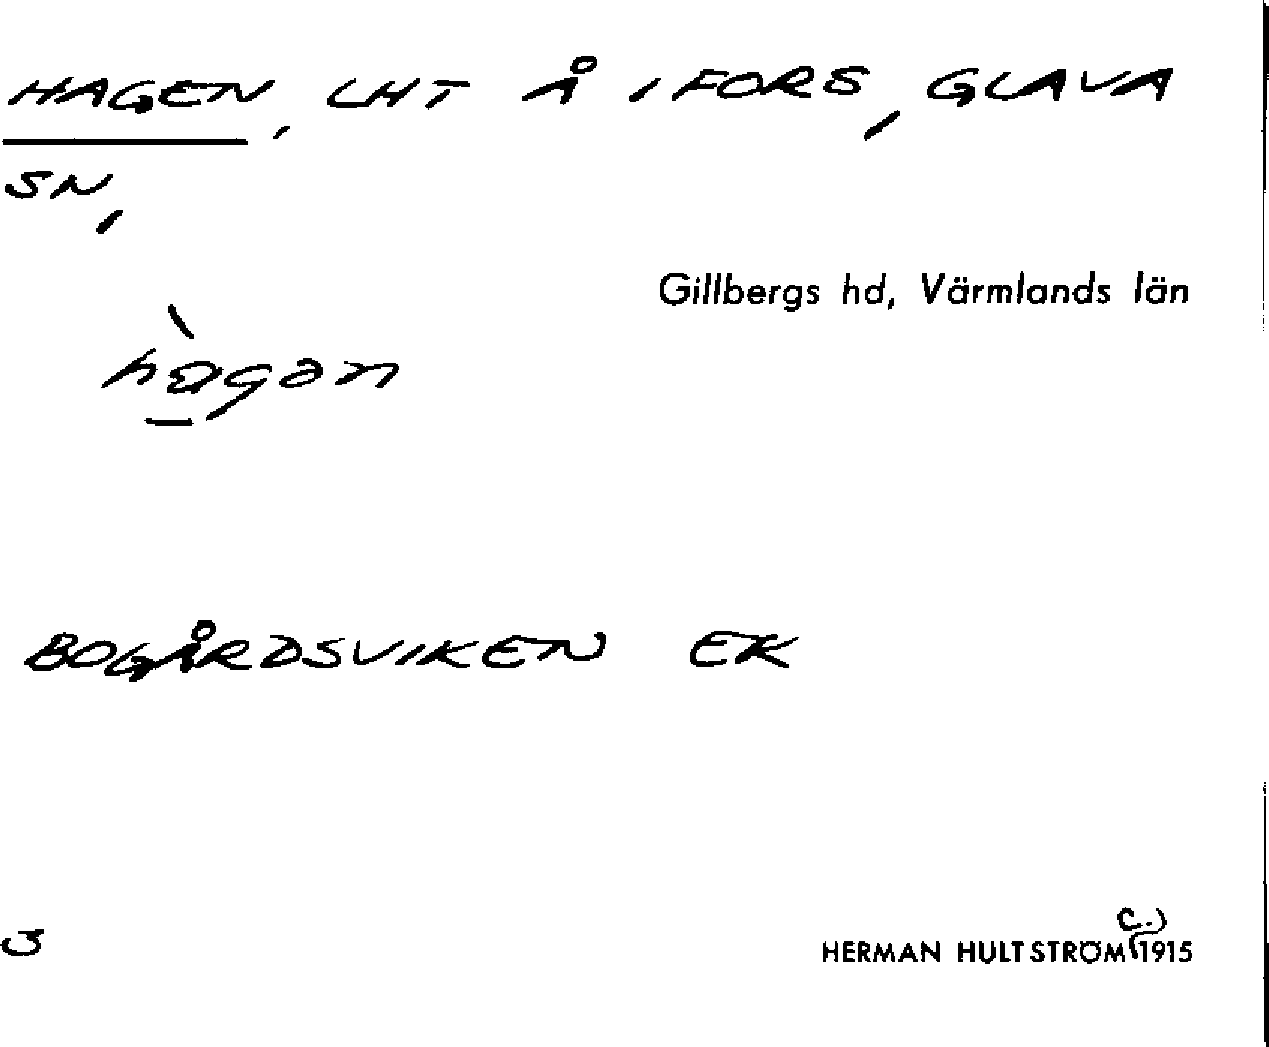 HAGEN, LHT Å IFORS, GLAVA
SN,
Gillbergs hd, Värmlands län
hàgən
BOGÅRDSVIKEN EK
3
HERMAN HULTSTRÖM (..) 1915